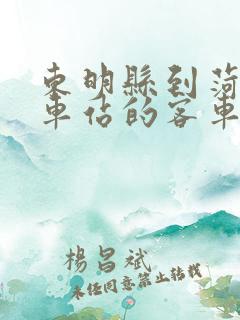 東明縣到菏
車站的客車
楊昌斌
未經同意禁止轉載